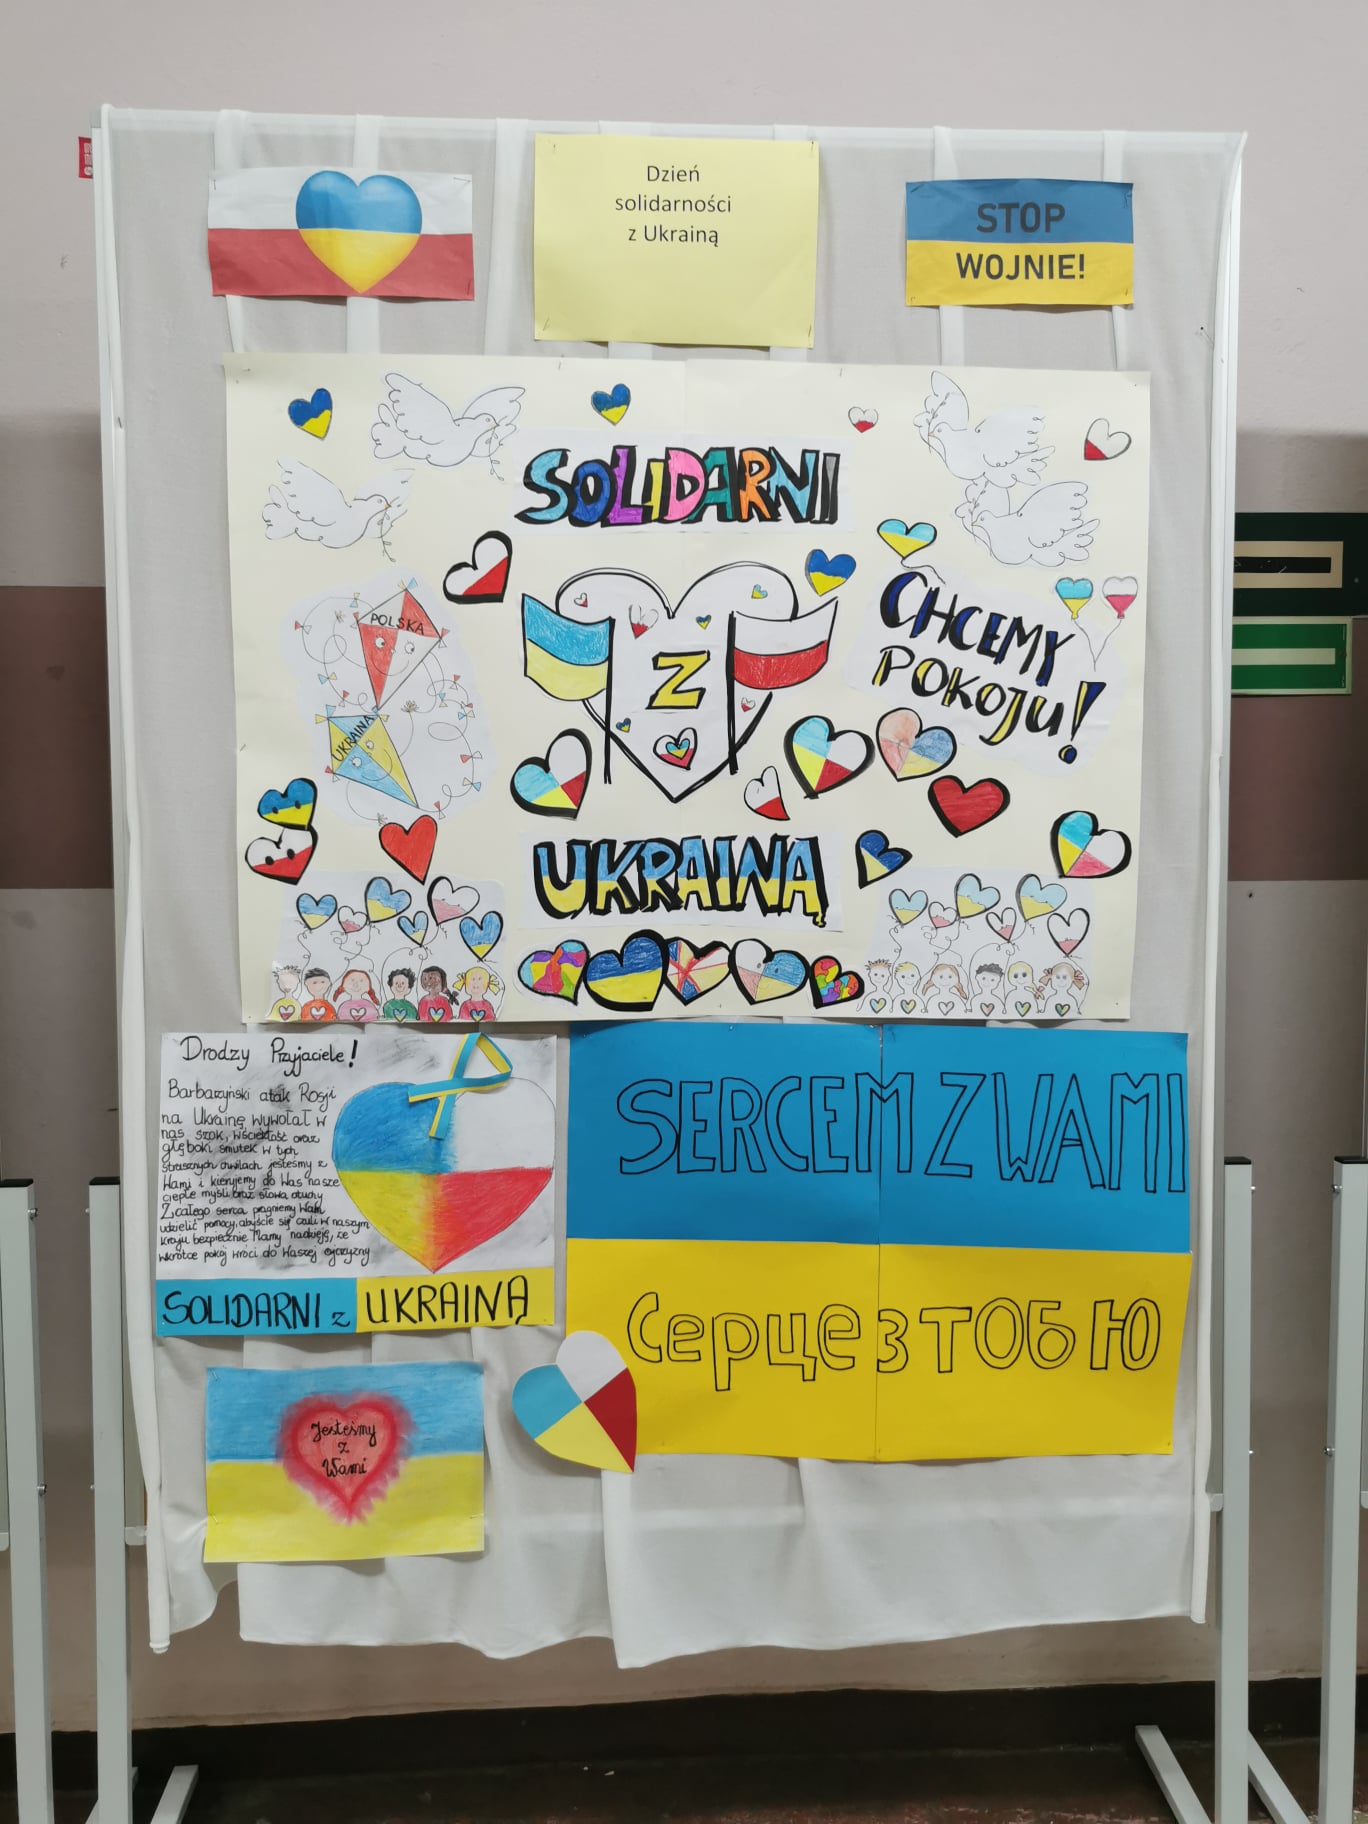 Dzień
solidarności
z Ukrainą
STOP
WOJNIE!
SOLIDARNI
Z
UKRAINĄ
POLSKA
UKRAINA
CHCEMY
POKOJU!
Drodzy Przyjaciele!
Barbarzyński atak Rosji
na Ukrainę wywołał w
nas szok, wściekłość oraz
głęboki smutek w tych
strasznych chwilach jesteśmy z
Wami i kierujemy do Was nasze
ciepłe myśli oraz słowa otuchy
Z całego serca pragniemy Wam
udzielić pomocy, abyście się czuli w naszym
kraju bezpiecznie Mamy nadzieję, że
wkrótce pokój wróci do Waszej ojczyzny
SOLIDARNI z UKRAINĄ
SERCEM Z WAMI
Серце з тобю
Jesteśmy
z
Wami